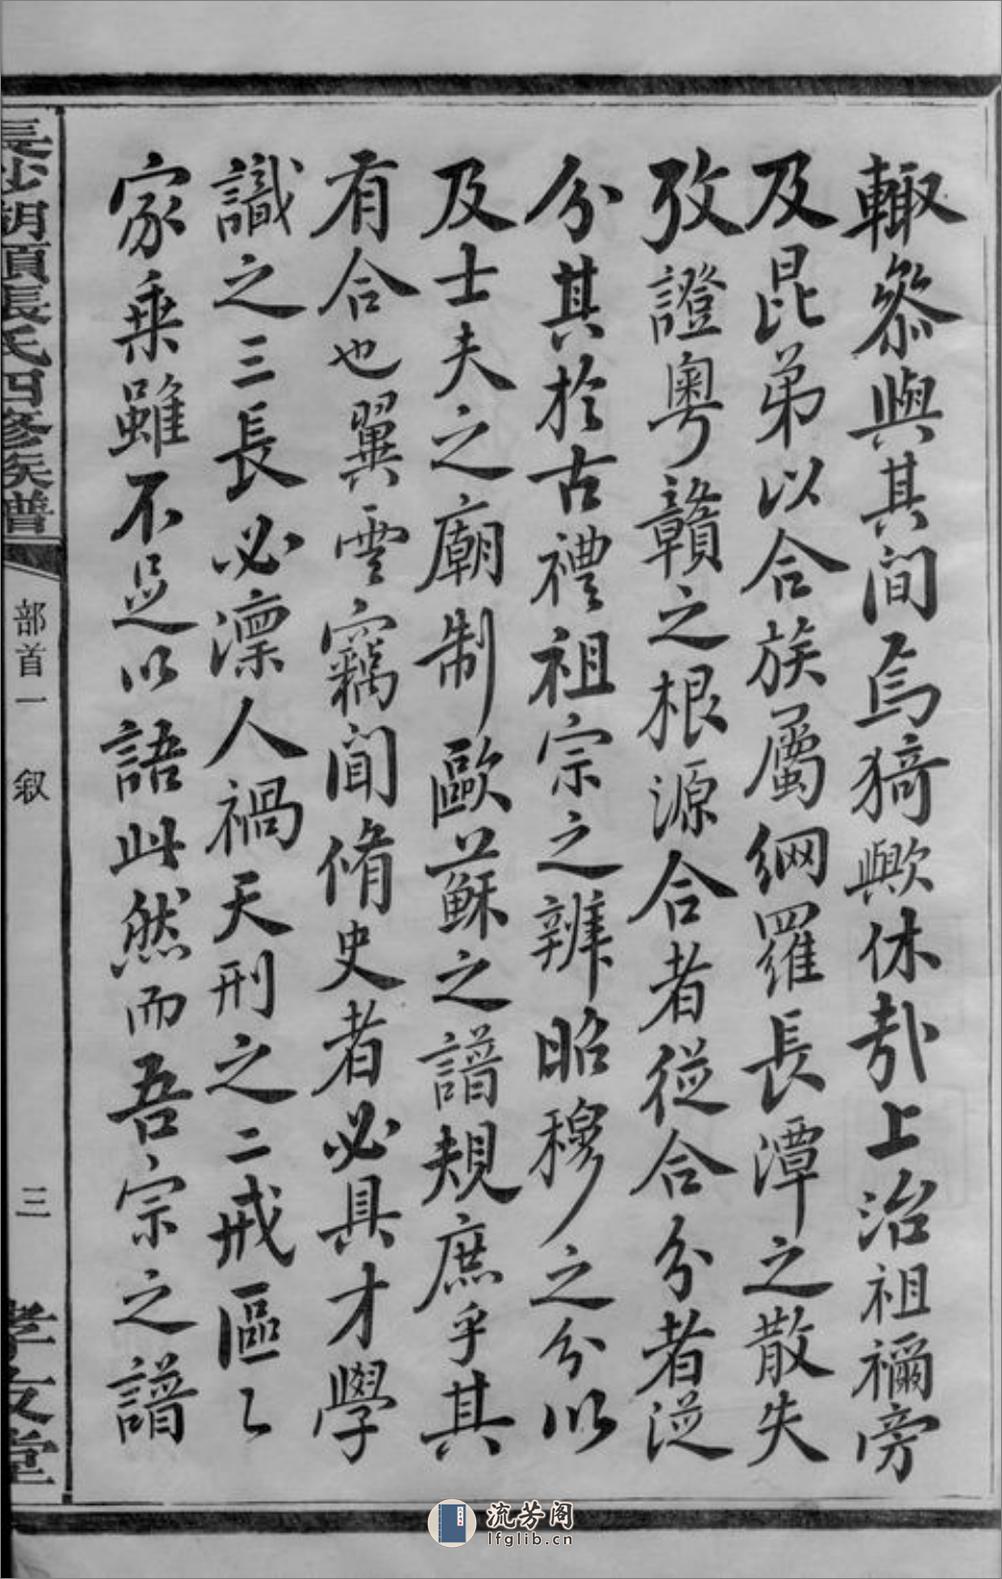 輙叅與其間焉猗歟休哉上治祖禰旁
及昆弟以合族屬網羅長潭之散失
攷證粵贛之根源合者從合分者從
分其於古禮祖宗之辨昭穆之分以
及士夫之廟制歐蘇之譜規庶乎其
有合也翼雲竊聞脩史者必具才學
識之三長必凜人禍天刑之二戒區〻
家乘雖不足以語此然而吾宗之譜
長沙湖頭張氏四修族譜
部首一 叙
三
孝友堂
流芳阁
lfglib.cn